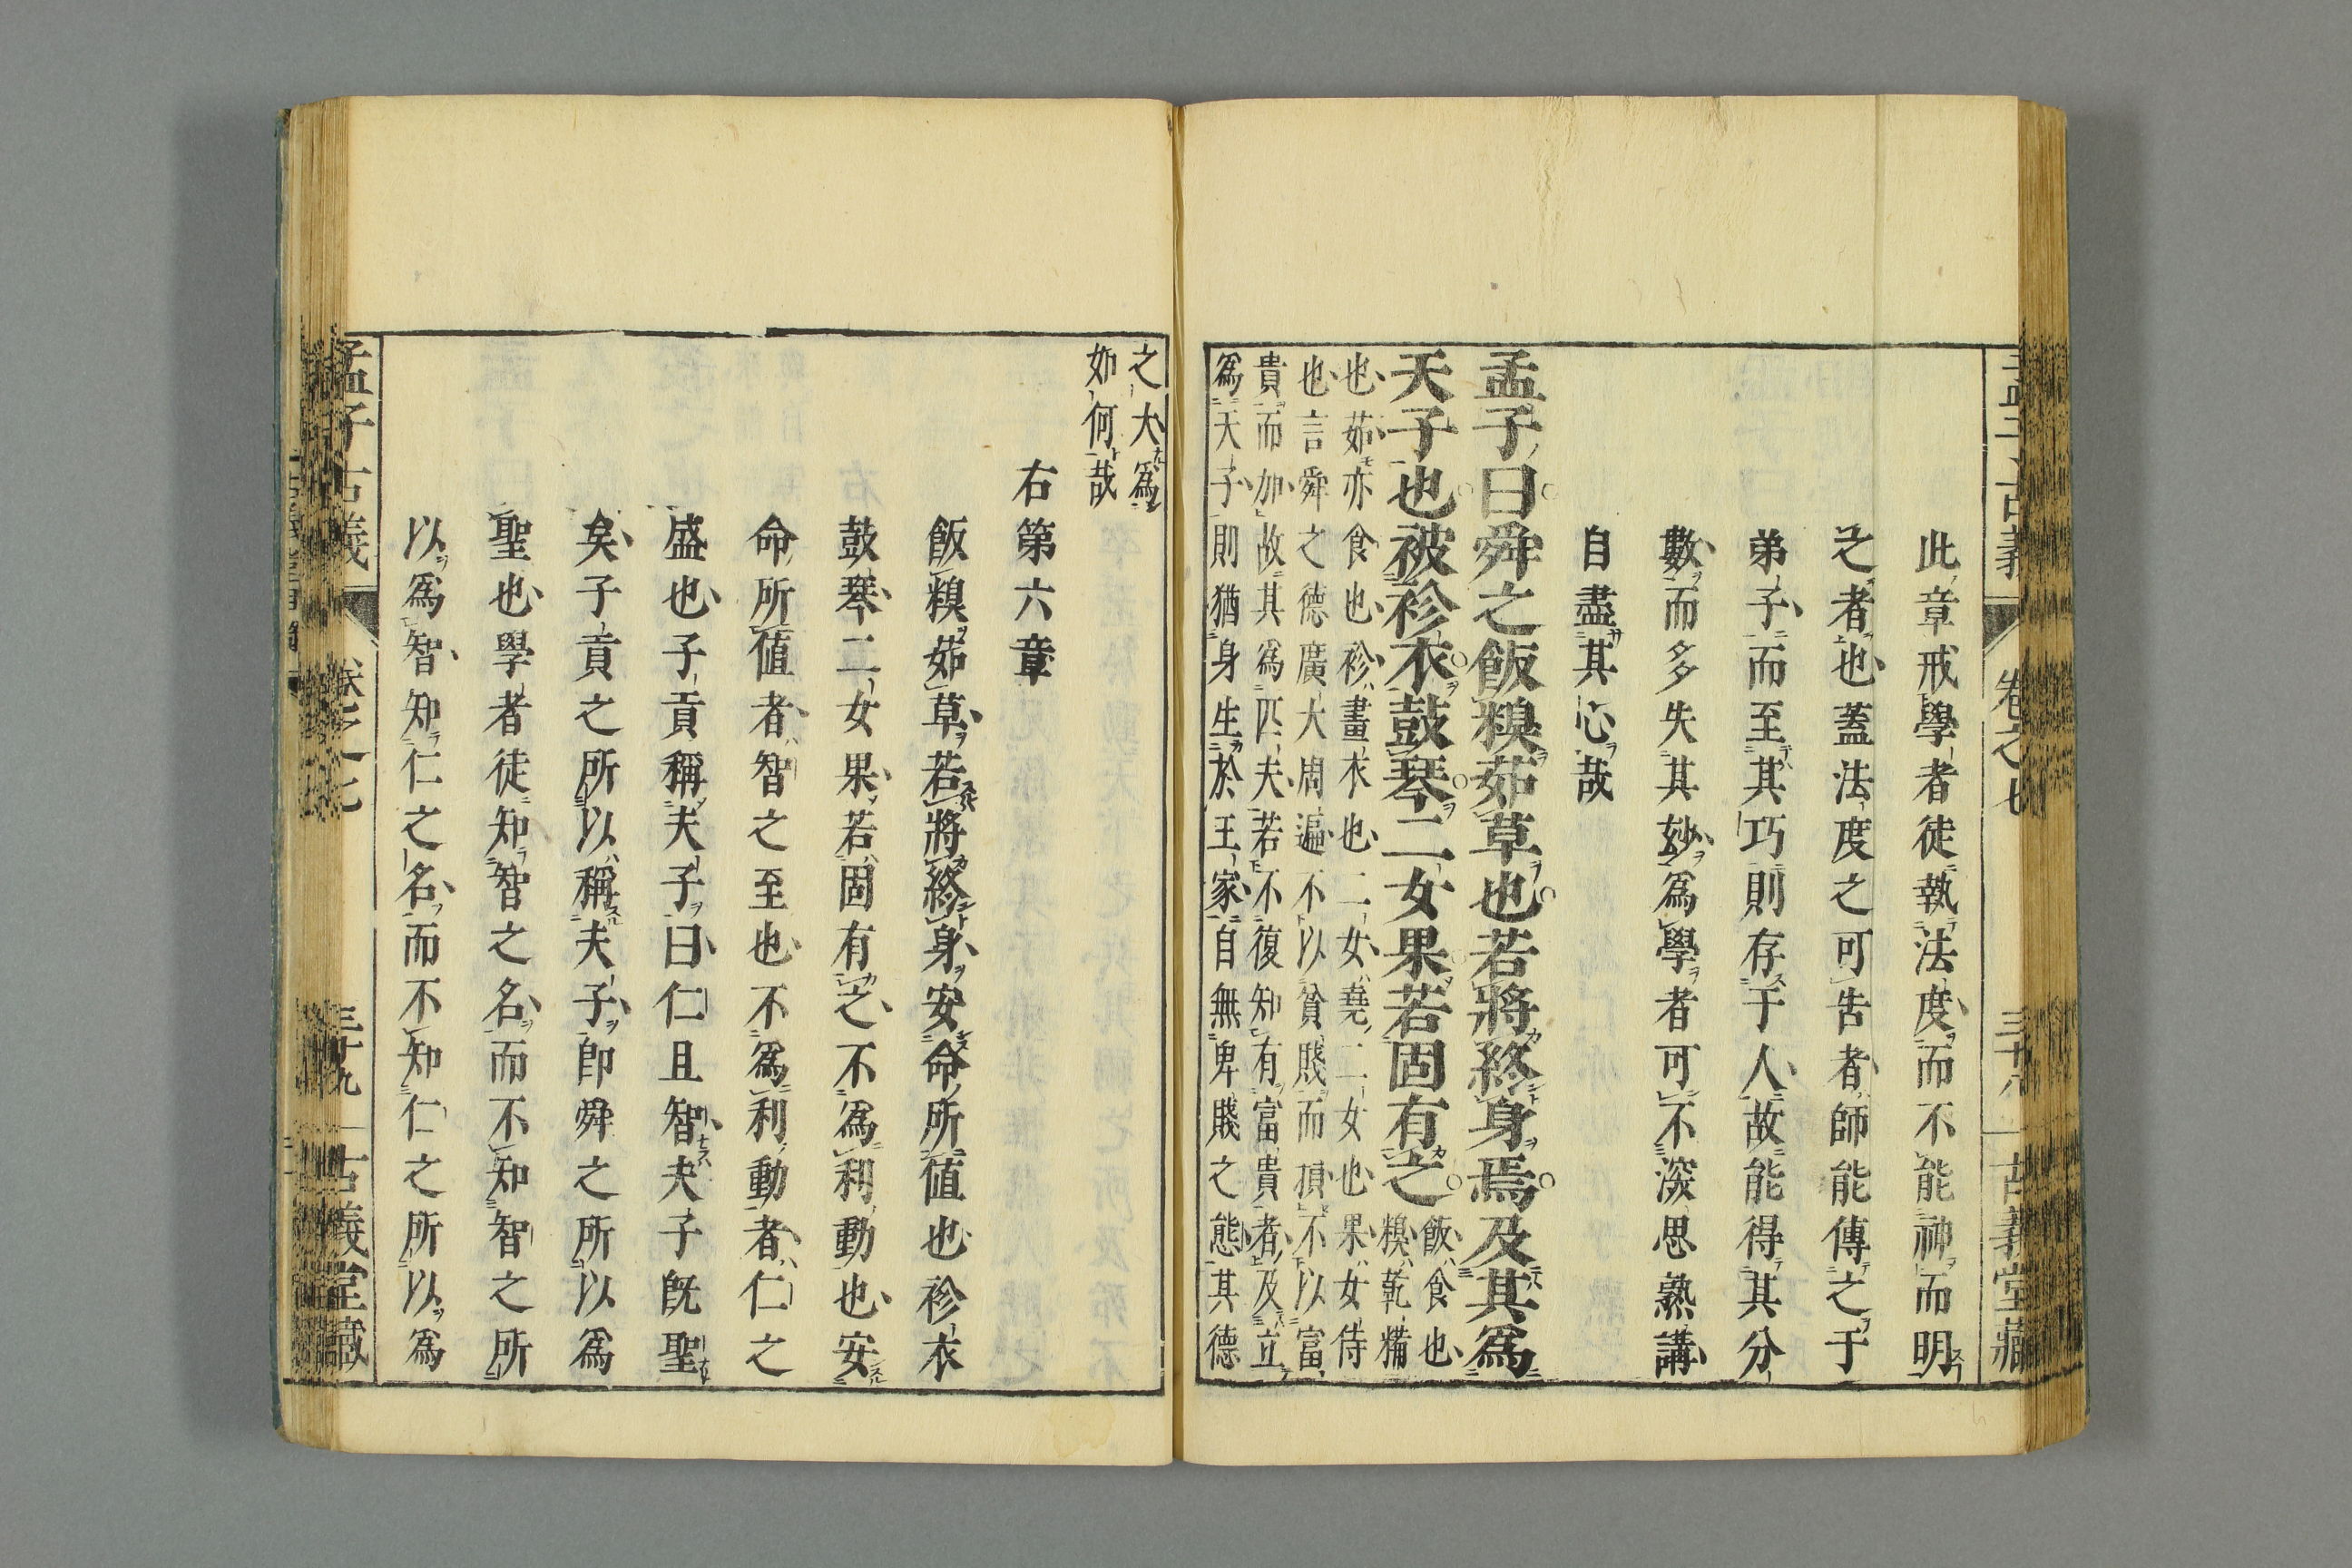 孟子古義 卷之七 三十八 古義堂藏
此章戒學者徒執法度而不能神而明
之者也蓋法度之可吿者師能傳之于
弟子而至其巧則存于人故能得其分
數而多失其妙爲學者可不深思熟講
自盡其心哉
孟子曰舜之飯糗茹草也若將終身焉及其爲
天子也被袗衣鼓琴二女果若固有之
飯食也
糗乾糒
也茹亦食也袗畫衣也二女堯二女也果女侍
也言舜之德廣大周遍不以貧賤而損不以富
貴而加故其爲匹夫若不復知有富貴者及立
爲天子則猶身生於王家自無卑賤之態其德
之大爲
如何哉
右第六章
飯糗茹草若將終身安命所値也袗衣
鼓琴二女果若固有之不爲利動也安
命所値者智之至也不爲利動者仁之
盛也子貢稱夫子曰仁且智夫子旣聖
矣子貢之所以稱夫子卽舜之所以爲
聖也學者徒知智之名而不知智之所
以爲智知仁之名而不知仁之所以爲
孟子古義 卷之七 三十九 古義堂藏